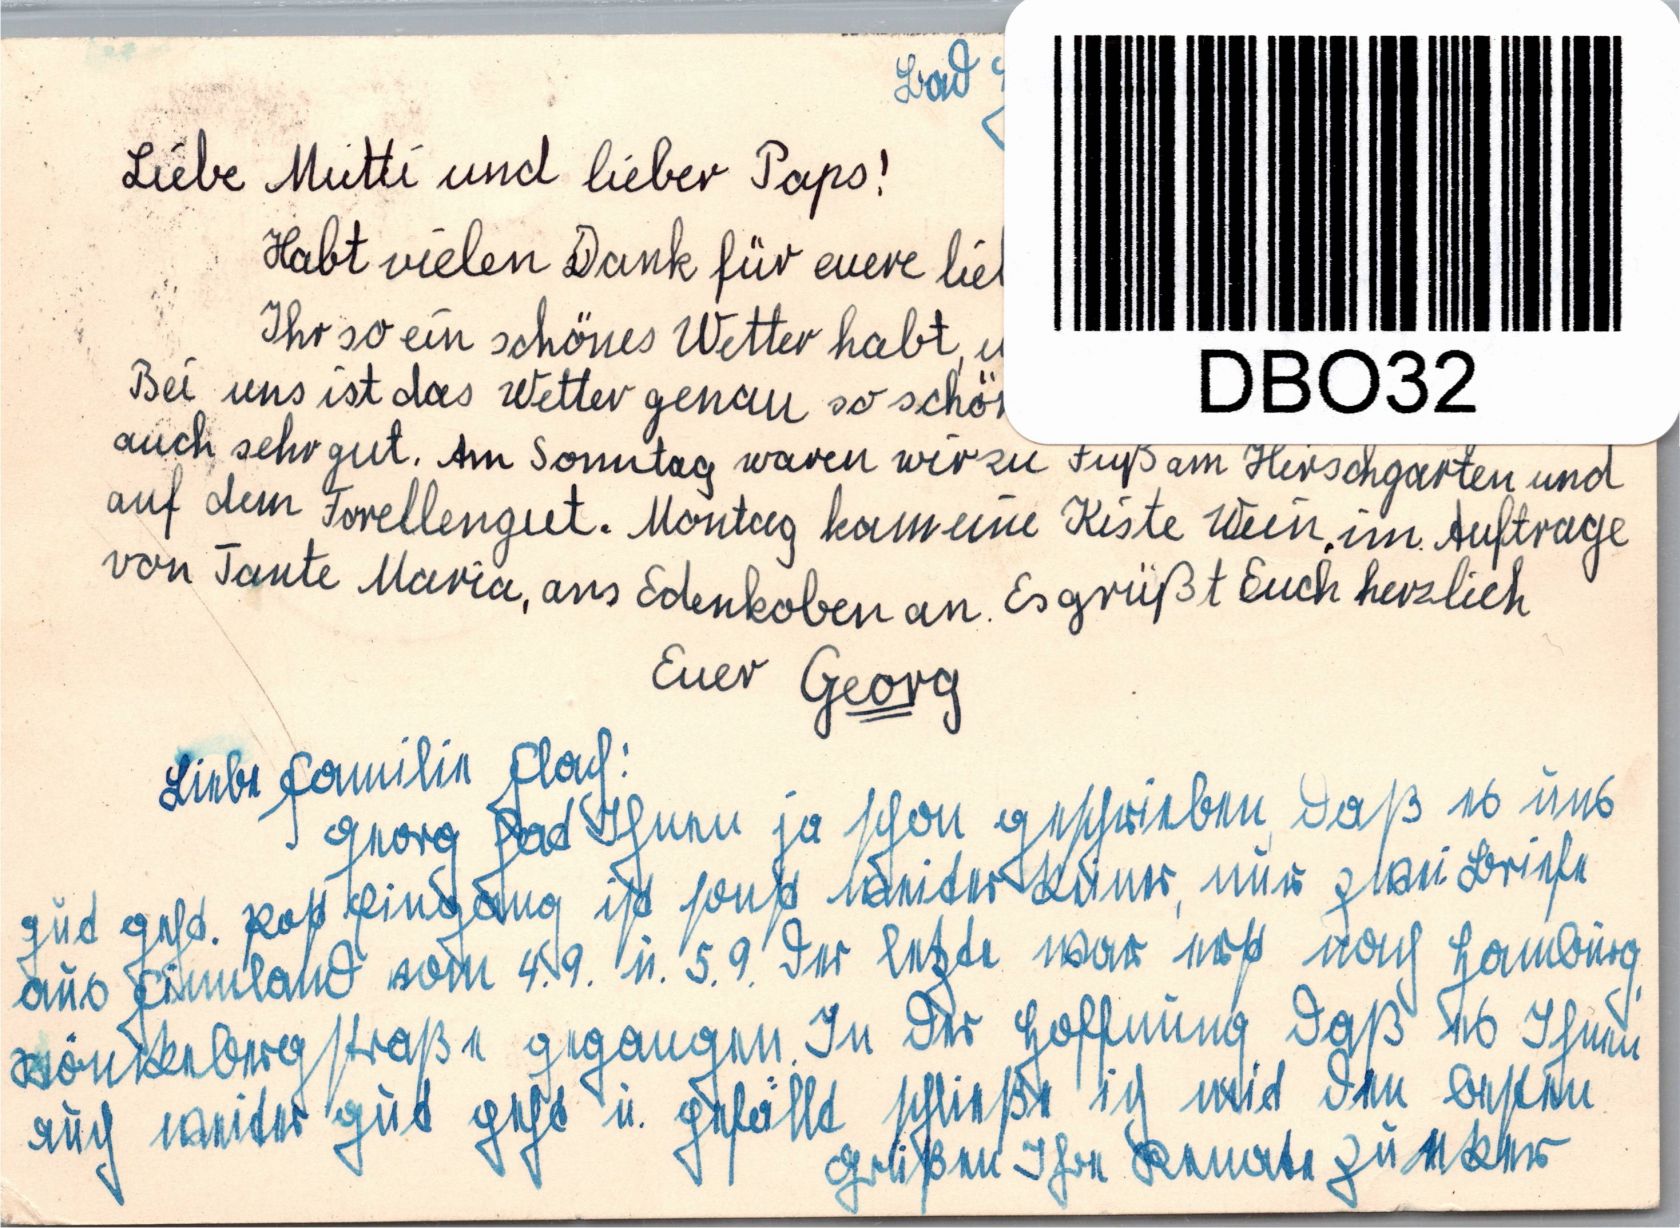 Bad
DBO32
Liebe Mutti und lieber Paps!
Habt vielen Dank für euere lie
Ihr so ein schönes Wetter habt, u
Bei uns ist das Wetter genau so schön
auch sehr gut. Am Sonntag waren wir zu Fuß am Hirschgarten und
auf dem Forellengut. Montag kam eine Kiste Wein, im Auftrage
von Tante Maria, aus Edenkoben an. Es grüßt Euch herzlich
Euer Georg
Liebe Familie Flach!
Georg hat Ihnen ja schon geschrieben, daß es uns
gut geht. Post Eingang ist sonst weiter keiner, nur zwei Briefe
aus Finnland vom 4.9. u. 5.9. Der letzte war erst nach Hamburg,
Mönkebergstraße gegangen. In der Hoffnung daß es Ihnen
auch weiter gut geht u. gefällt schließe ich mit den besten
Grüßen Ihre Renate Zunker